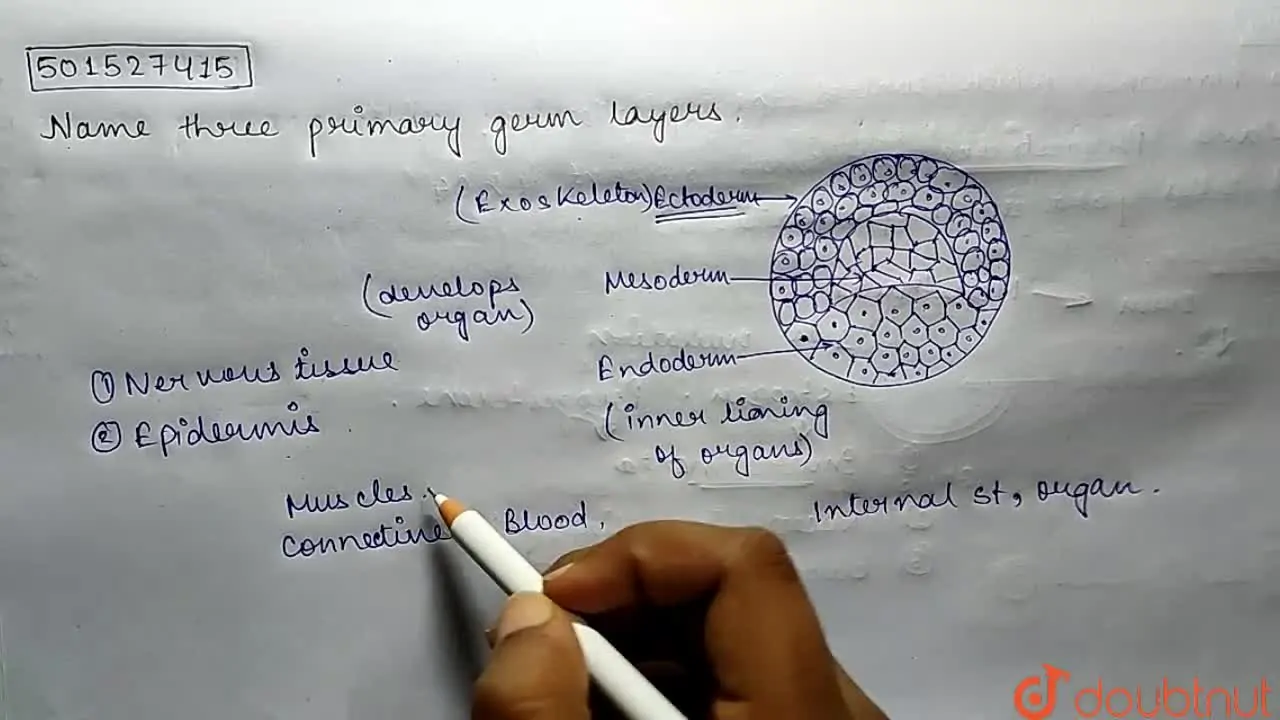 501527415
Name three primary germ layers.
(Exoskeleton) Ectoderm
(develops
organ)
Mesoderm
① Nervous tissue
Endoderm
② Epidermis
(inner lioning
of organs)
Muscles.
Internal st, organ.
Connective
Blood,
doubtnut